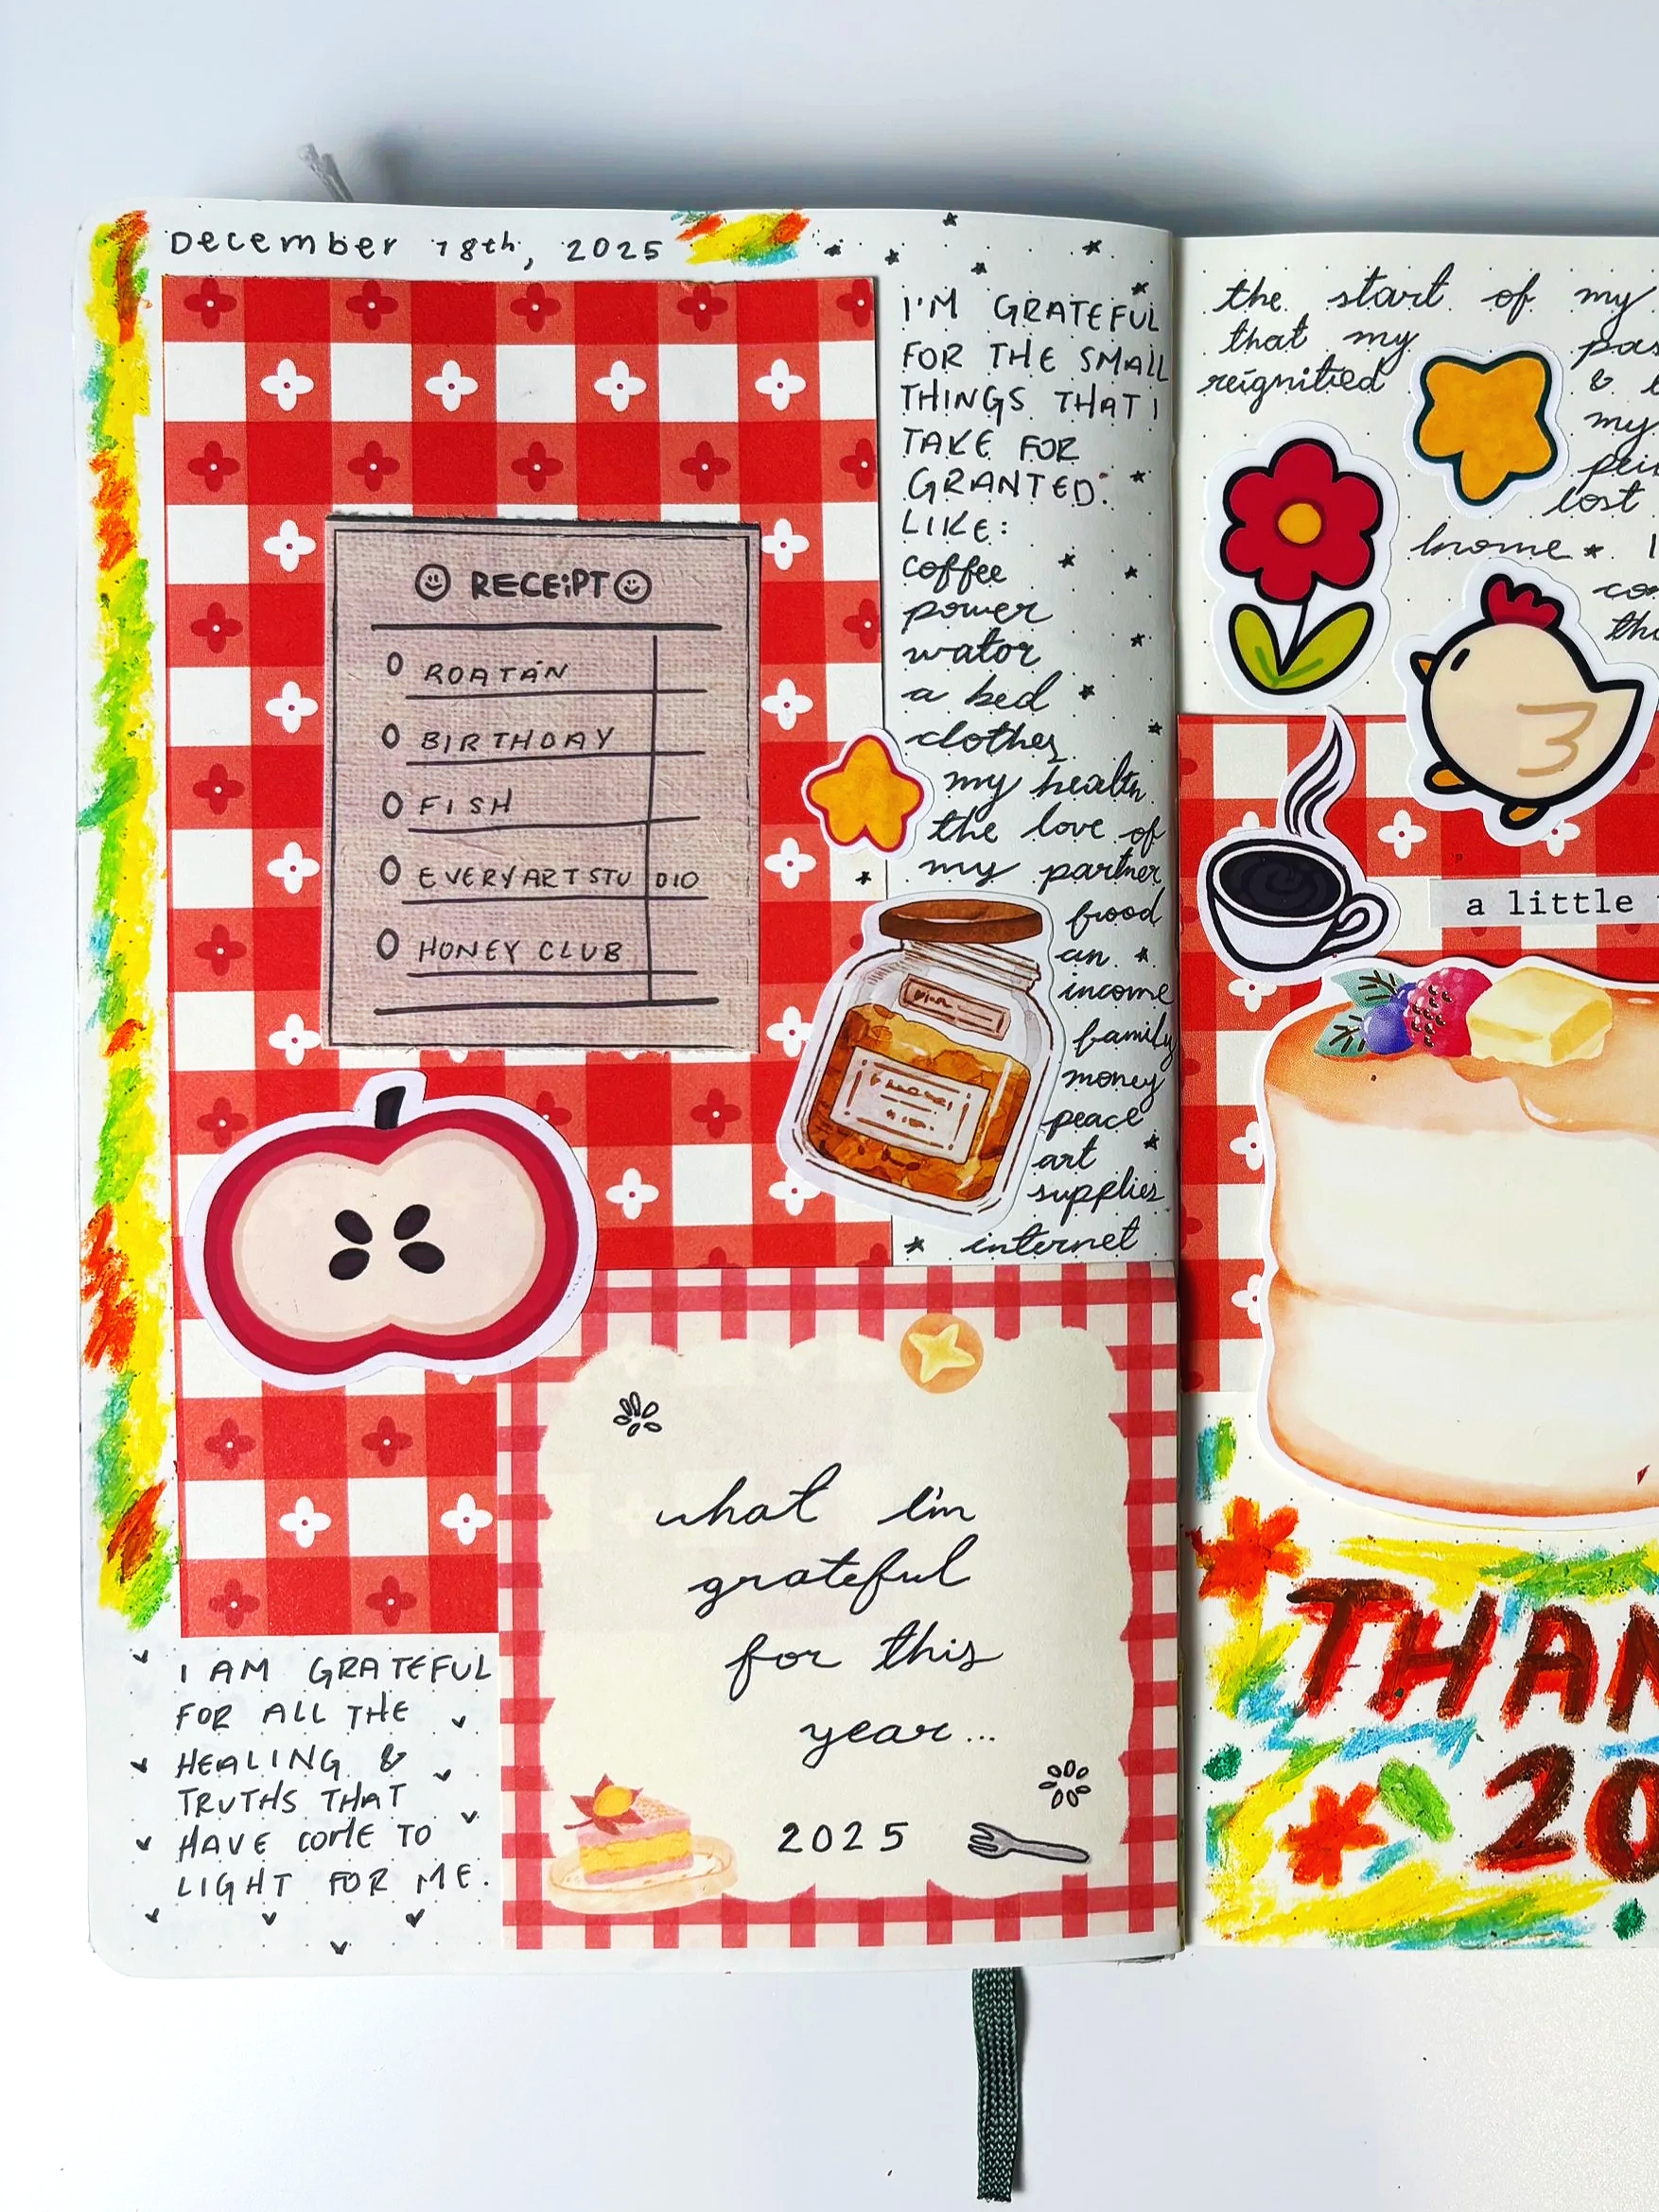 December 18th, 2025
RECEIPT
ROATÁN
BIRTHDAY
FISH
EVERY ART STUDIO
HONEY CLUB
I'M GRATEFUL
FOR THE SMALL
THINGS THAT I
TAKE FOR
GRANTED.
LIKE:
coffee
power
wator
a bed
clothes
my health
the love of
my partner
food
an
income
family
money
peace
art
supplies
internet
I AM GRATEFUL
FOR ALL THE
HEALING &
TRUTHS THAT
HAVE COME TO
LIGHT FOR ME.
what I'm
grateful
for this
year...
2025
the start of my
that my
reignitied
&
my
lost
home
a little
THAN
20